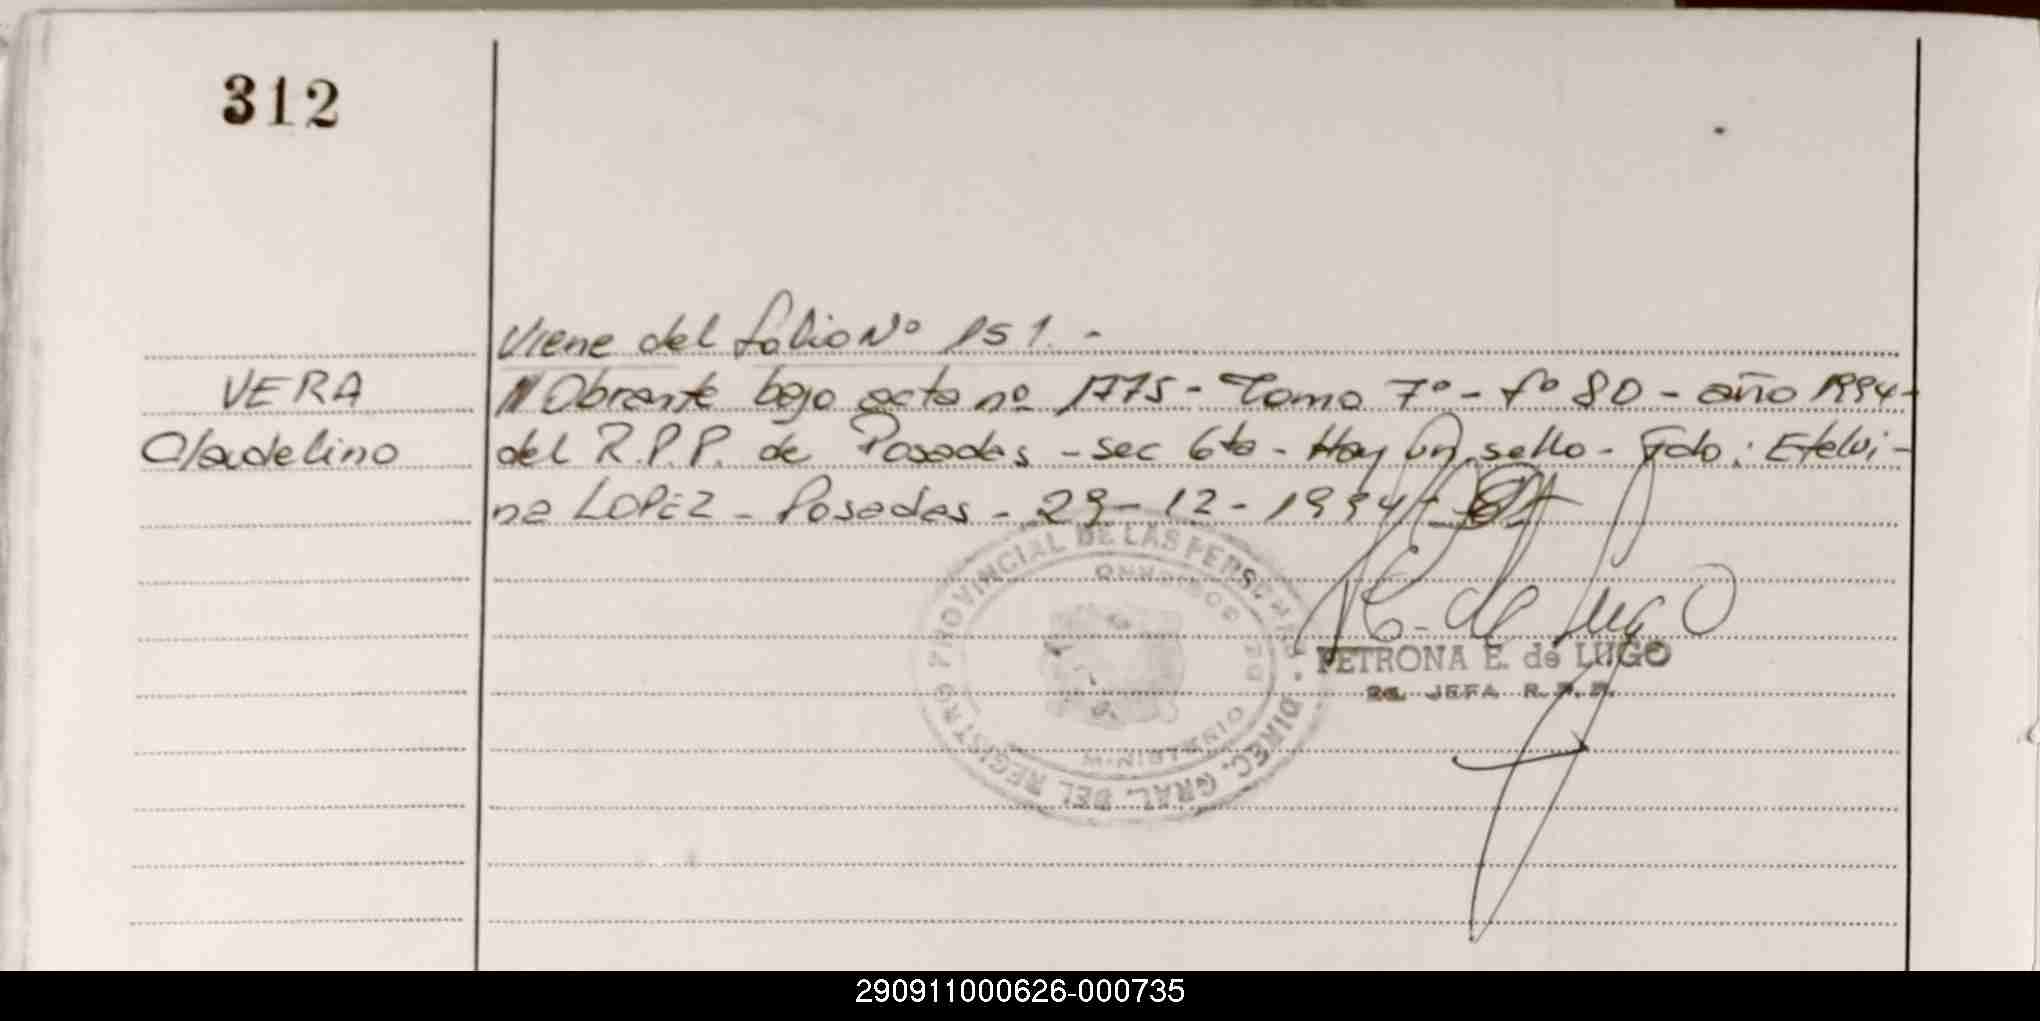 312
Viene del folio Nº 151.-
VERA
Cladelino
// Obrante bajo acta nº 1775 - Tomo 7º - fº 80 - año 1994-
del R.P.P. de Posadas - sec 6ta - Hay un sello - Fdo: Etelvi-
na LOPEZ - Posadas - 29-12-1994-
PETRONA E. de LUGO
2a. JEFA R.P.P.
DIREC. GRAL. DEL REGISTRO PROVINCIAL DE LAS PERSONAS
290911000626-000735